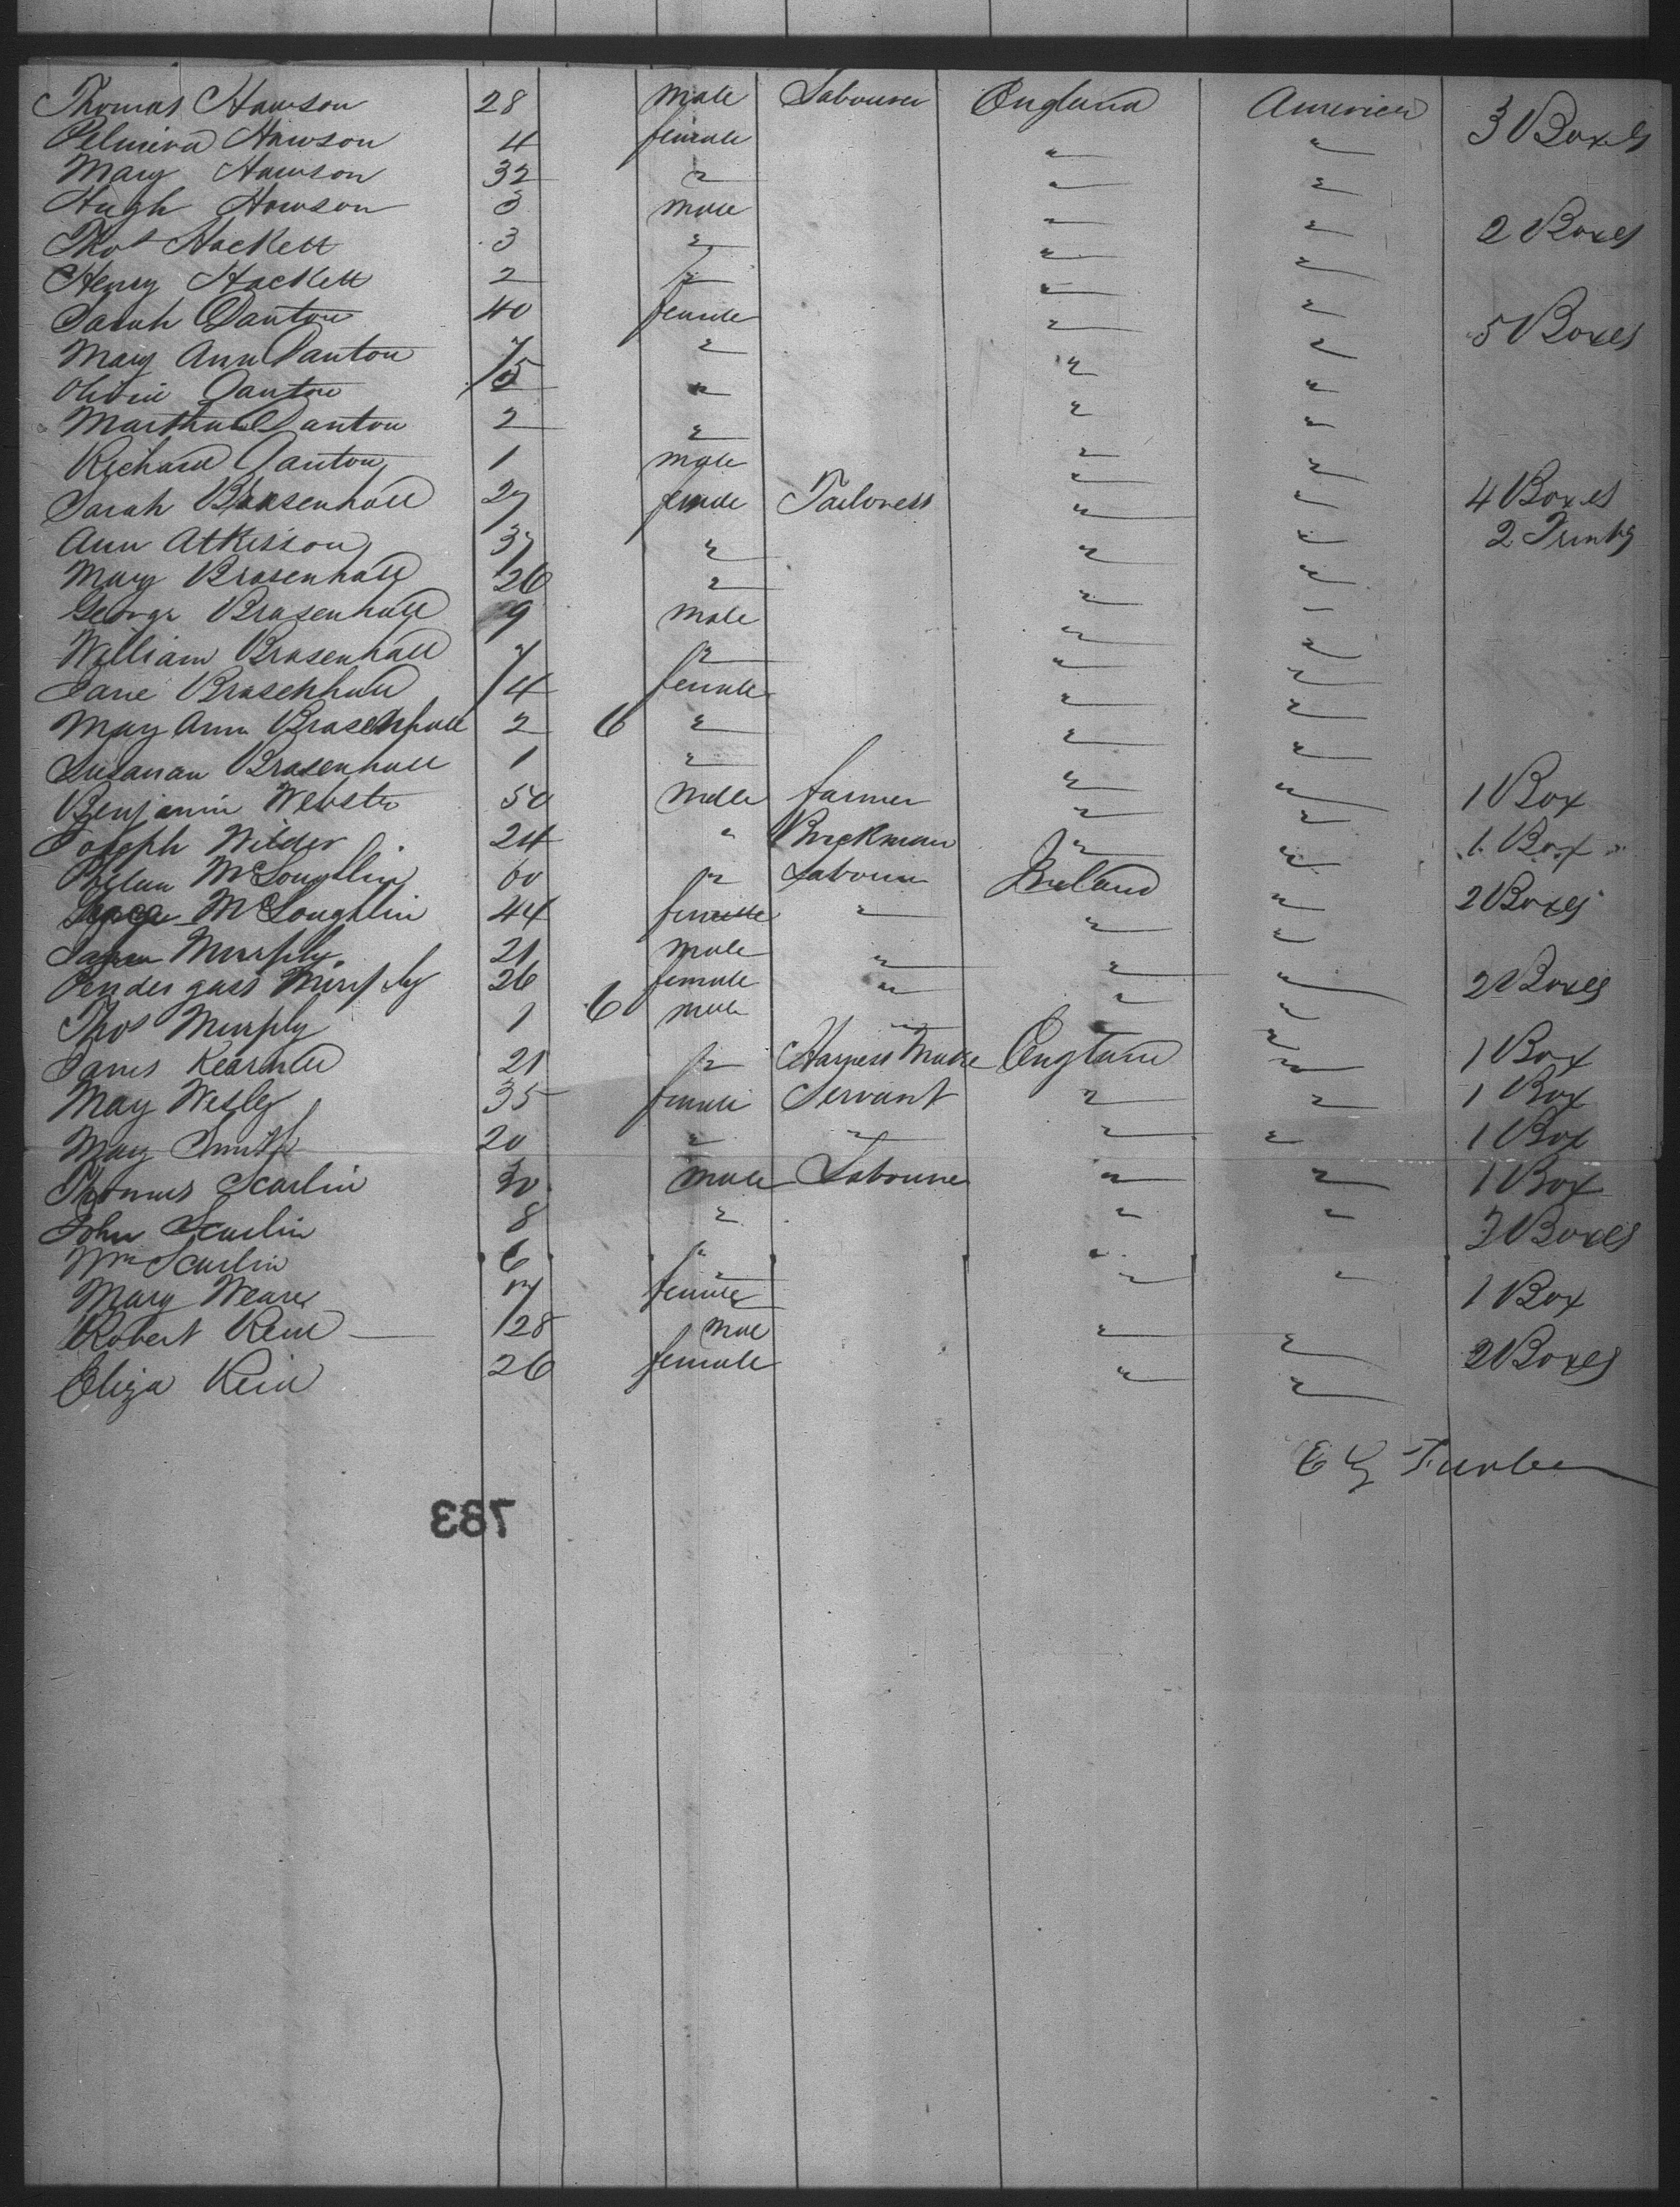 Thomas Hawson 28 male Labourer England America 3 Boxes
Elmira Hawson 4 female " "
Mary Hawson 32 " " "
Hugh Hawson 3 male " " 2 Boxes
Thos Hackett 3 " " "
Henry Hackett 2 " " "
Sarah Danton 40 female " " 5 Boxes
Mary Ann Danton 7 " " "
Olivia Danton 5 " " "
Martha Danton 2 " " "
Richard Danton 1 male " "
Sarah Brasenhall 27 female Tailoress " " 4 Boxes
Ann Atkisson 37 " " " 2 Trunks
Mary Brasenhall 26 " " "
George Brasenhall 9 male " "
William Brasenhall 7 " " "
Jane Brasenhall 4 female " "
Mary Ann Brasenhall 2 6 " " "
Susanan Brasenhall 1 " " "
Benjamin Webster 50 male farmer " " 1 Box
Joseph Wilder 24 " Brickman " " 1 Box
Phelan McLoughlin 60 " Labourer Ireland " 2 Boxes
McLoughlin 44 female " " "
Murphy 21 male " " "
Pendergass Murphy 26 female " " " 2 Boxes
Thos Murphy 1 6 male " " "
James Kearnell 21 " Harness Maker England " 1 Box
Mary Wesley 35 female Servant " " 1 Box
Mary Smith 20 " " " " 1 Box
Thomas Scarlin 30 male Labourer " " 1 Box
John Scarlin 8 " " " 3 Boxes
Wm Scarlin 6 " "
Mary Weare 17 female " " 1 Box
Robert Keill 28 male " " 2 Boxes
Eliza Keill 26 female " "
E G Furber
783